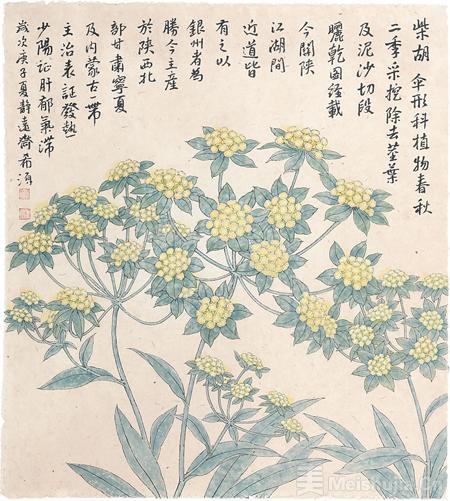 柴胡 傘形科植物春秋
二季采挖除去莖葉
及泥沙切段
曬乾圖經載
今關陝
江湖間
近道皆
有之以
銀州者為
勝今主產
於陝西北
部甘肅寧夏
及內蒙古一帶
主治表証發熱
少陽証肝郁氣滞
歲次庚子夏靜遠齋希海
美 Meishujia.Cn